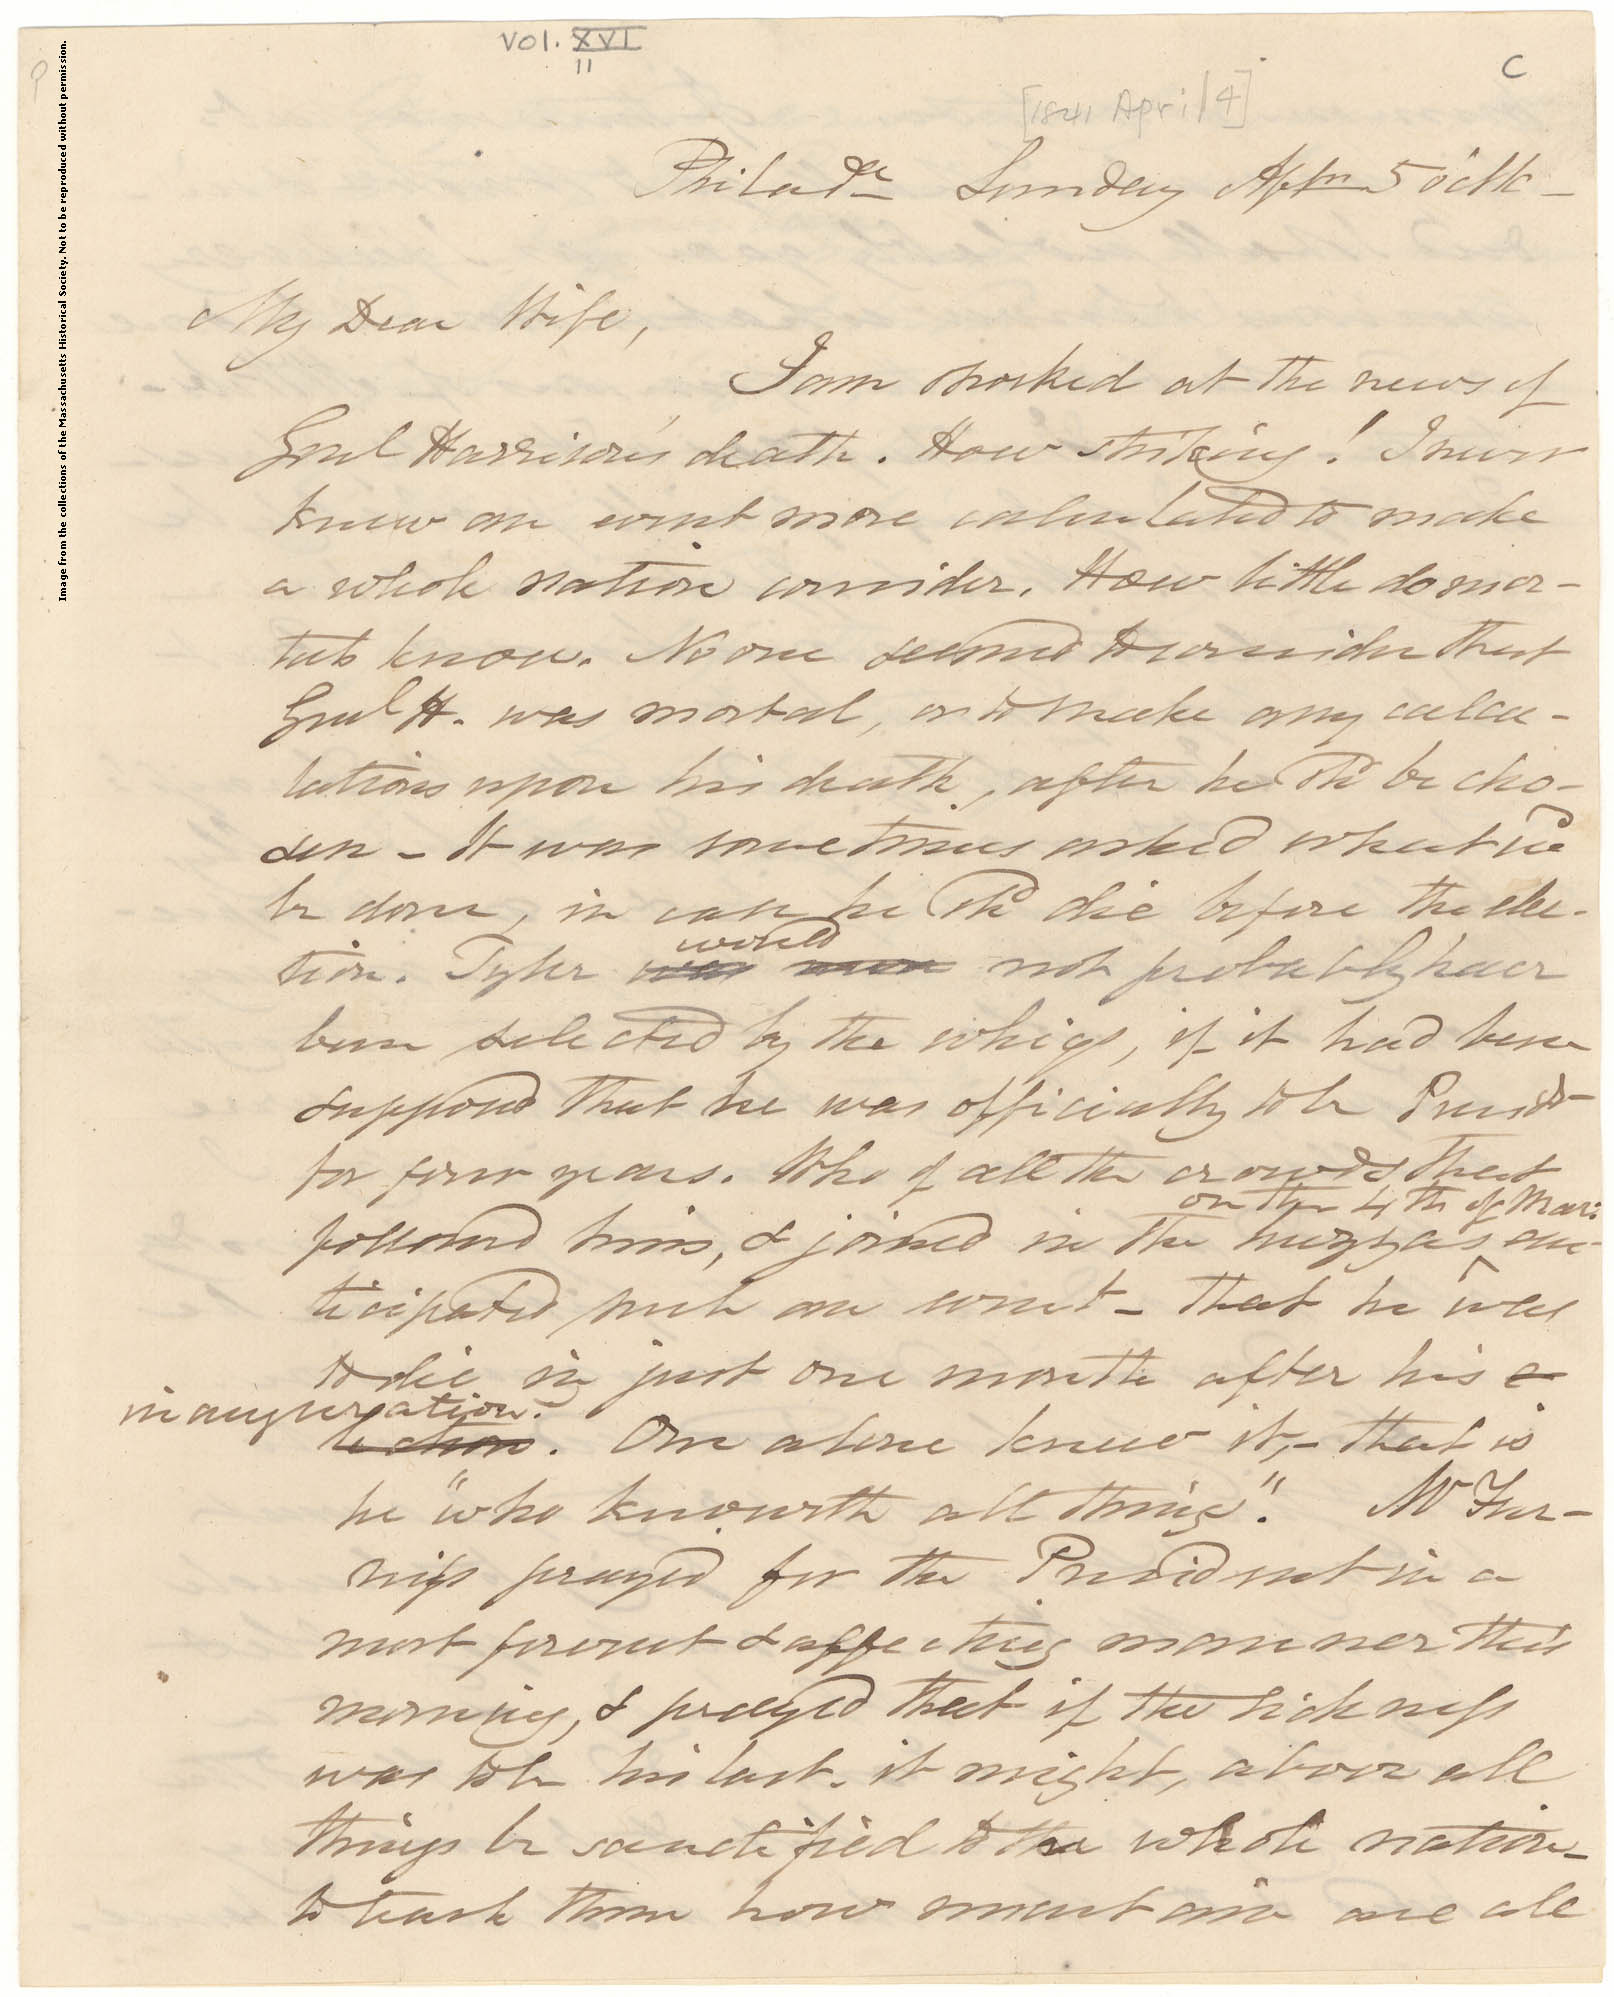 Vol. XVI
11
C
[1841 April 4]
Image from the collections of the Massachusetts Historical Society. Not to be reproduced without permission.
Philada Sunday Aftn 5 o'clk -
My Dear Wife,
I am shocked at the news of
Genl Harrison's death. How striking! I never
knew an event more calculated to make
a whole nation consider. How little do mor-
tals know. No one seemed to consider that
Genl H. was mortal, or to make any calcu-
lations upon his death, after he shd be cho-
sen - It was sometimes asked what wd
be done, in case he shd die before the elec-
tion. Tyler was would not probably have
been selected by the whigs, if it had been
supposed that he was officially to be Presidt
for four years. Who of all the crowds that
on the 4th of Mar:
followed him, & joined in the huzzas an-
ticipated such an event - that he was
to die in just one month after his e
inauguration.
lection. One alone knew it, - that is
he "who knoweth all things". Mr Fur-
ness prayed for the President in a
most fervent & affecting manner this
morning, & prayed that if the sickness
was to be his last, it might, above all
things be sanctified to the whole nation -
to teach them how uncertain are all